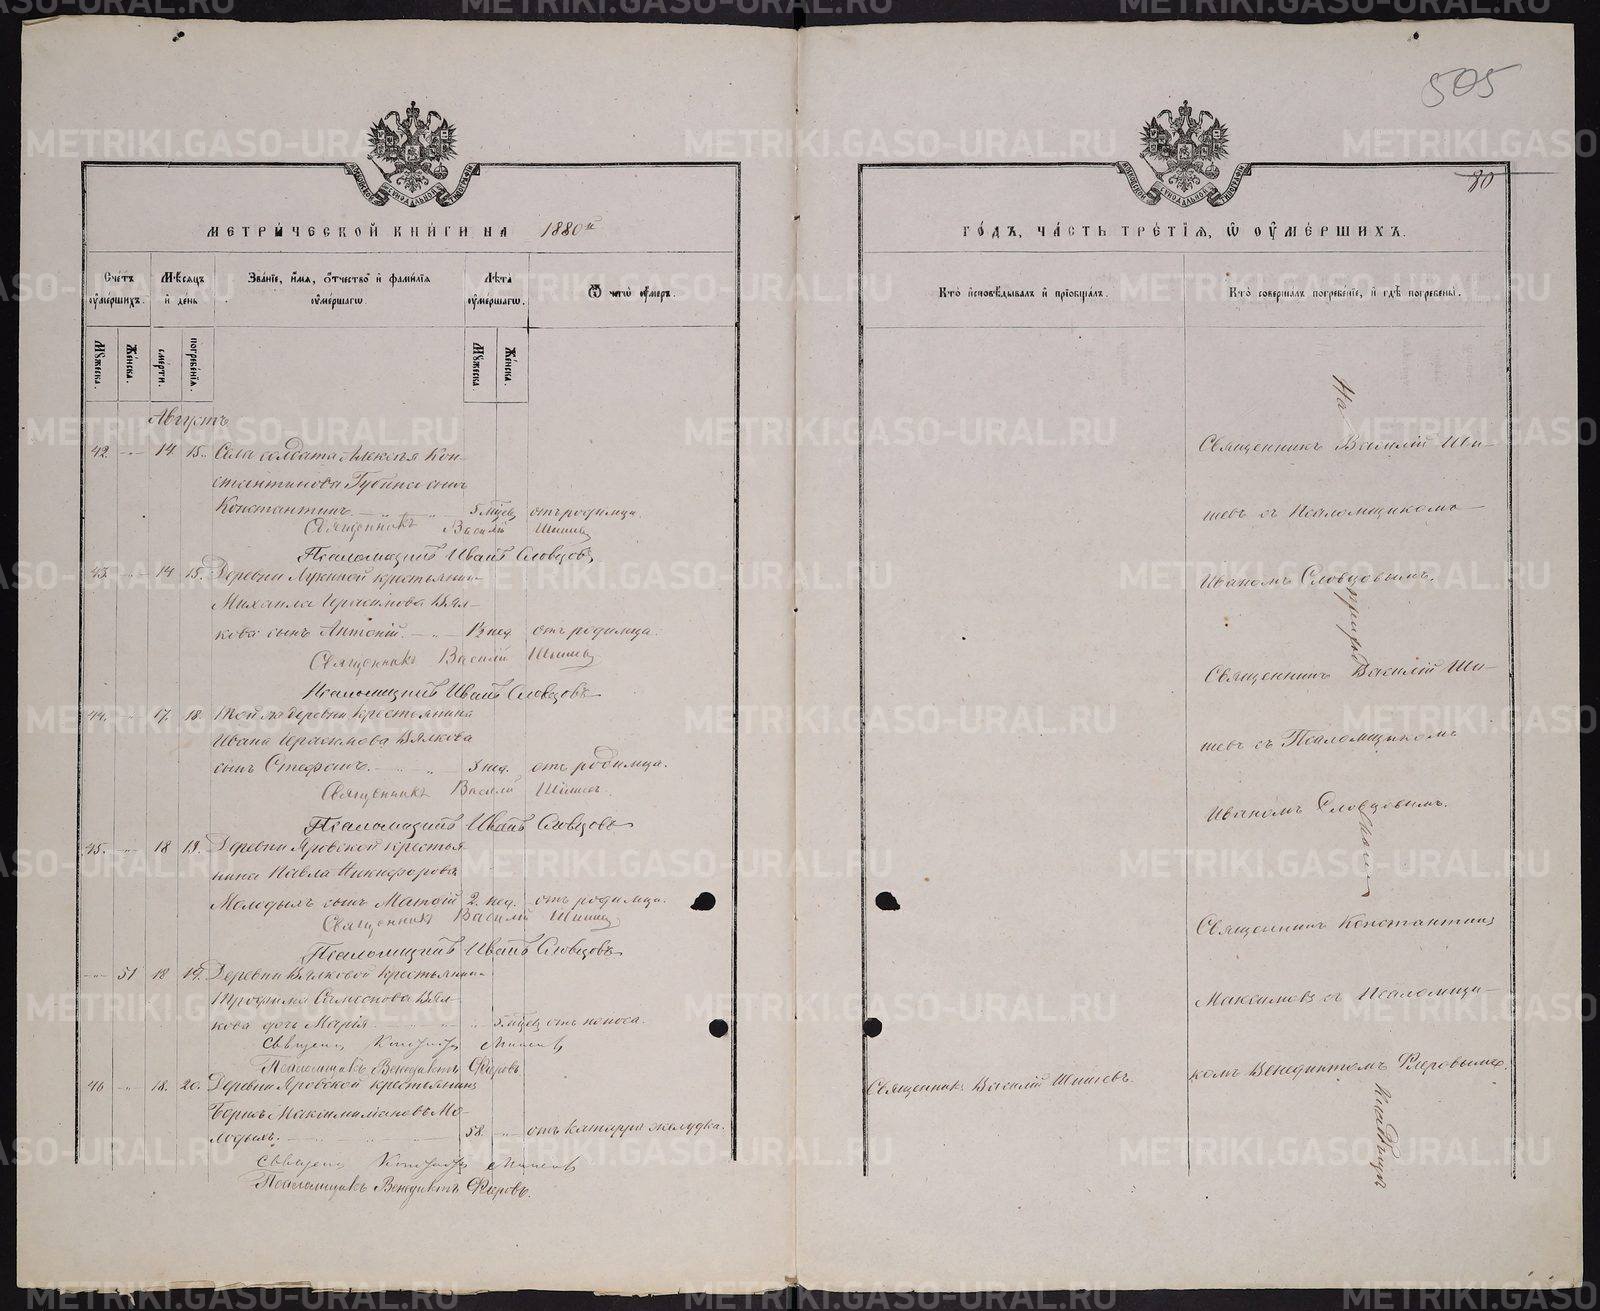 505
80
МЕТРИЧЕСКОЙ КНИГИ НА 1880й
Счетъ умершихъ.
Мѣсяцъ и день
Званіе, имя, отчество и фамилія умершаго.
Лѣта умершаго.
Ѿ чего умеръ.
Мужеска.
Женска.
смерти.
погребенія.
Мужеска.
Женска.
Августъ
42. 14 15. Села солдата Алексѣя Кон-
стантинова Губина сынъ
Константинъ. 5 мѣсц. отъ родимца.
Священникъ Василій Шишевъ
Псаломщикъ Иванъ Словцовъ
43. 14 15. Деревни Лукиной крестьянина
Михаила Герасимова Вял-
кова сынъ Антоній. 1½ нед. отъ родимца.
Священникъ Василій Шишевъ
Псаломщикъ Иванъ Словцовъ
44. 17. 18. Той же деревни крестьянина
Ивана Герасимова Вялкова
сынъ Стефанъ. 3 нед. отъ родимца.
Священникъ Василій Шишевъ
Псаломщикъ Иванъ Словцовъ
45. 18 19. Деревни Яровской крестья-
нина Павла Никифорова
Молодыхъ сынъ 2. нед. отъ родимца.
Священникъ Василій Шишевъ
Псаломщикъ Иванъ Словцовъ
51 18 19. Деревни Вялковой крестьянина
Трофима Самсонова Вял-
кова дочь Марія 5 мѣсц. отъ поноса.
Священ.
Псаломщикъ Венедиктъ Флеровъ
46 18. 20. Деревни Яровской крестьянинъ
Борисъ Максимиліановъ Мо-
лодыхъ. 58. отъ катарра желудка.
Священ.
Псаломщикъ Венедиктъ Флеровъ.
ГОДЪ, ЧАСТЬ ТРЕТІЯ, Ѿ УМЕРШИХЪ.
Кто исповѣдывалъ и пріобщалъ.
Кто совершалъ погребеніе, и гдѣ погребены.
Священникъ Василій Ши-
шевъ съ Псаломщикомъ
Иваномъ Словцовымъ.
Священникъ Василій Ши-
шевъ съ Псаломщикомъ
Иваномъ Словцовымъ.
Священникъ Константинъ
Максимовъ съ Псаломщи-
комъ Венедиктомъ Флеровымъ.
Священникъ Василій Шишевъ.
На приходскомъ кладбищѣ
METRIKI.GASO-URAL.RU